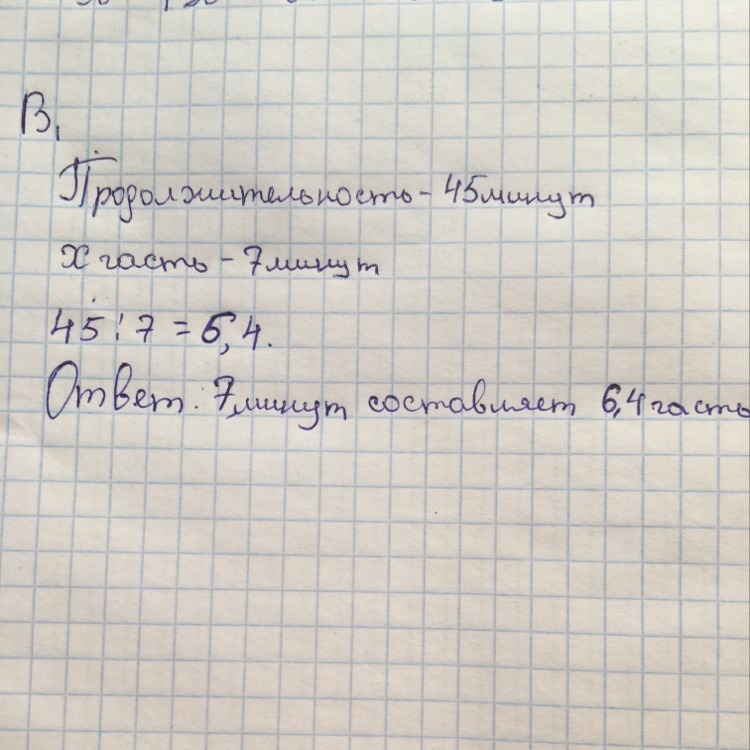 В1
Продолжительность - 45 минут
х часть - 7 минут
45 : 7 = 6,4.
Ответ: 7 минут составляет 6,4 часть